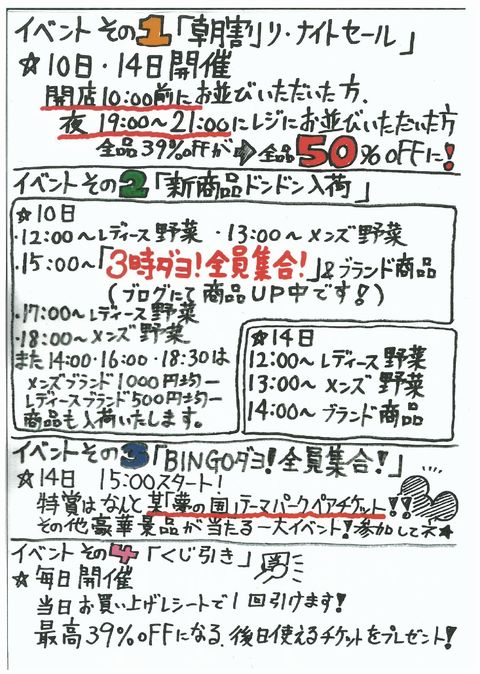 イベント その1「朝割り・ナイトセール」
☆10日・14日開催
開店10:00前にお並びいただいた方、
夜 19:00～21:00にレジにお並びいただいた方
全品39%OFFが➡全品50%OFFに!
イベント その2「新商品ドンドン入荷」
☆10日
・12:00～レディース野菜 ・13:00～メンズ野菜
・15:00～「3時ダヨ!全員集合!」&ブランド商品
(ブログにて商品UP中です!)
・17:00～レディース野菜
・18:00～メンズ野菜
また14:00・16:00・18:30は
メンズブランド1000円均一
レディースブランド500円均一
商品も入荷いたします。
☆14日
12:00～レディース野菜
13:00～メンズ野菜
14:00～ブランド商品
イベント その3「BINGOダヨ!全員集合!」
☆14日 15:00スタート!
特賞はなんと某「夢の国」テーマパークペアチケット!!
その他豪華景品が当たる一大イベント!参加してネ★
イベント その4「くじ引き」
☆毎日開催
当日お買い上げレシートで1回引けます!
最高39%OFFになる、後日使えるチケットをプレゼント!